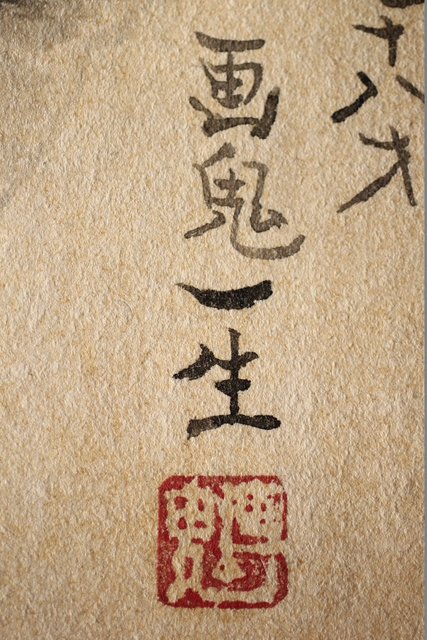 十八才
画鬼一生